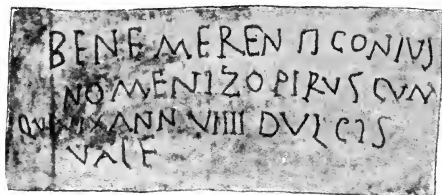 BENE MERENTI CONIVS
NOMENI ZOPIRVS CVM
ANN VIIII DVLCIS
VALE